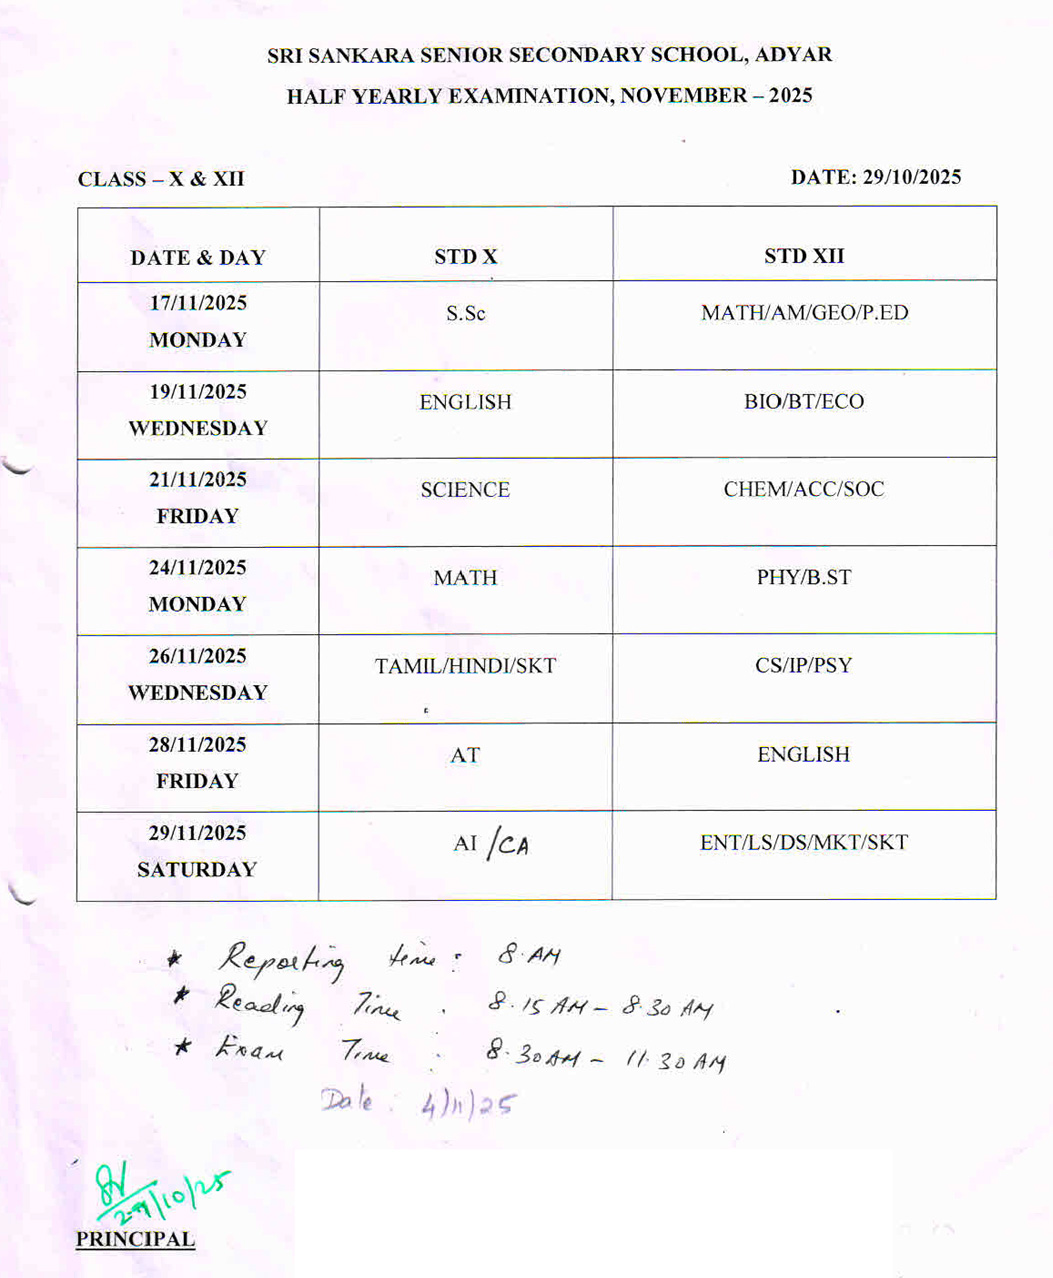 SRI SANKARA SENIOR SECONDARY SCHOOL, ADYAR
HALF YEARLY EXAMINATION, NOVEMBER – 2025
CLASS – X & XII DATE: 29/10/2025
DATE & DAY STD X STD XII
17/11/2025
MONDAY S.Sc MATH/AM/GEO/P.ED
19/11/2025
WEDNESDAY ENGLISH BIO/BT/ECO
21/11/2025
FRIDAY SCIENCE CHEM/ACC/SOC
24/11/2025
MONDAY MATH PHY/B.ST
26/11/2025
WEDNESDAY TAMIL/HINDI/SKT CS/IP/PSY
28/11/2025
FRIDAY AT ENGLISH
29/11/2025
SATURDAY AI /CA ENT/LS/DS/MKT/SKT
* Reporting time : 8 AM
* Reading Time : 8.15 AM – 8.30 AM
* Exam Time : 8.30AM – 11.30 AM
Date : 4/11/25
29/10/25
PRINCIPAL